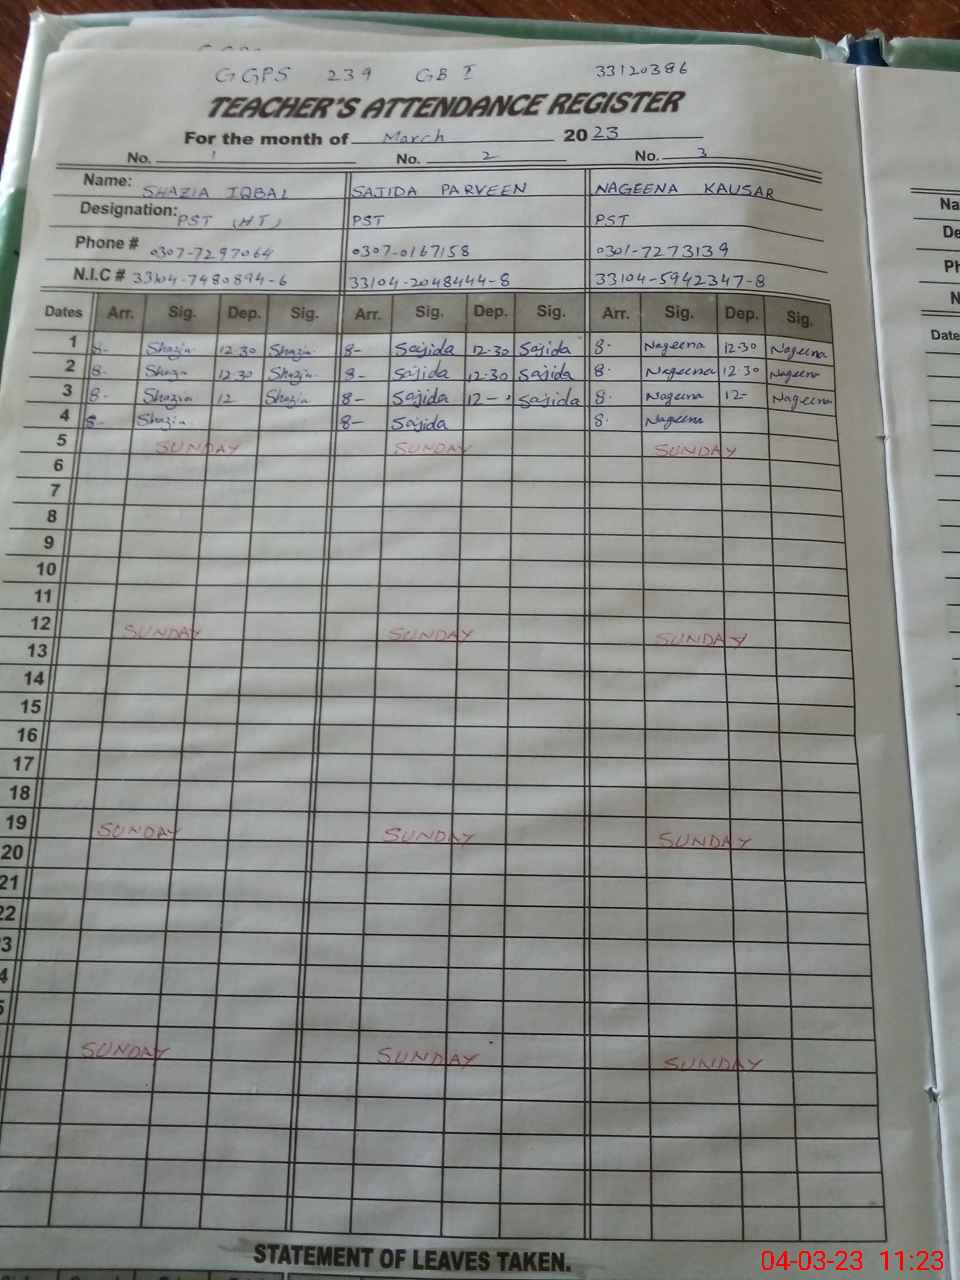 GGPS 239 GB I 33120386
TEACHER'S ATTENDANCE REGISTER
For the month of March 2023
No. 1 No. 2 No. 3
Name: SHAZIA IQBAL SAJIDA PARVEEN NAGEENA KAUSAR
Designation: PST (HT) PST PST
Phone # 0307-7297064 0307-0167158 0301-7273139
N.I.C # 33104-7480894-6 33104-2048444-8 33104-5942347-8
Dates Arr. Sig. Dep. Sig. Arr. Sig. Dep. Sig. Arr. Sig. Dep. Sig.
1 8- Shazia 12.30 Shazia 8- Sajida 12-30 Sajida 8- Nageena 12-30 Nageena
2 8- Shazia 12.30 Shazia 8- Sajida 12-30 Sajida 8- Nageena 12.30 Nageena
3 8- Shazia 12 Shazia 8- Sajida 12- Sajida 8- Nageena 12- Nageena
4 8- Shazia 8- Sajida 8- Nageena
5 SUNDAY SUNDAY SUNDAY
6
7
8
9
10
11
12 SUNDAY SUNDAY SUNDAY
13
14
15
16
17
18
19 SUNDAY SUNDAY SUNDAY
20
21
22
3
4
5
SUNDAY SUNDAY SUNDAY
STATEMENT OF LEAVES TAKEN.
Na
De
Ph
N
Date
04-03-23 11:23